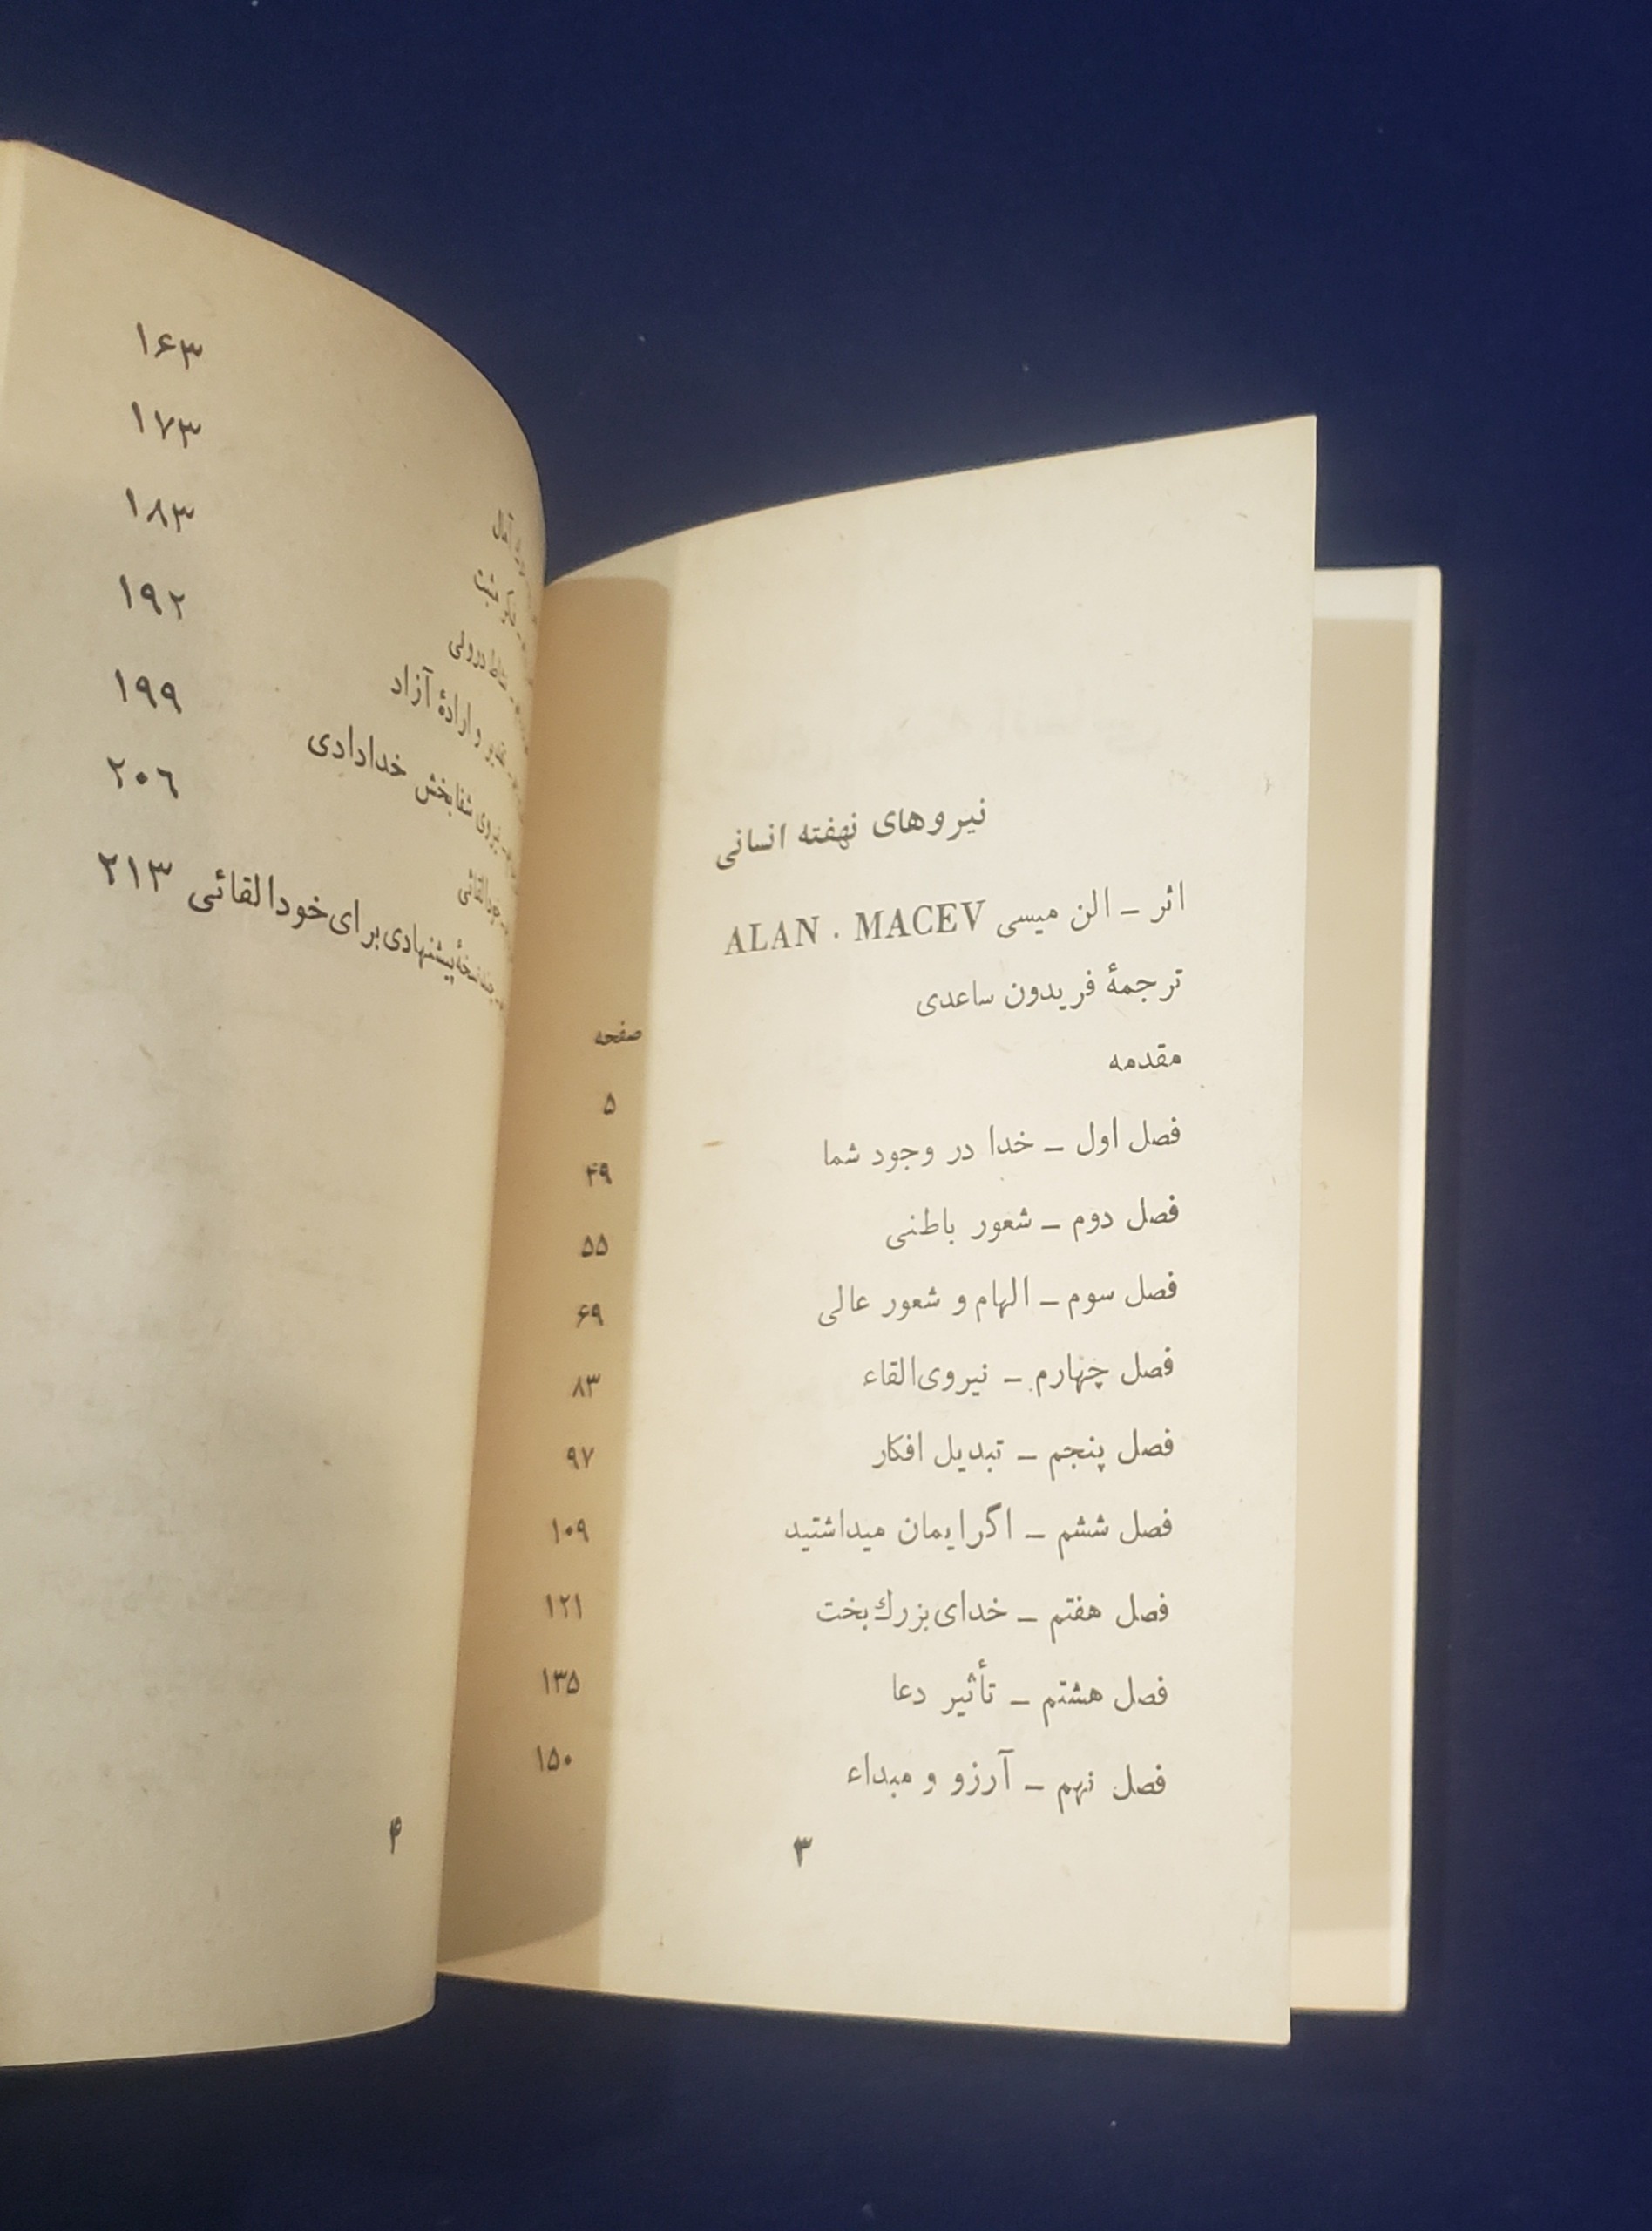 نیروهای نهفته انسانی
اثر ـ الن میسی ALAN . MACEV
ترجمهٔ فریدون ساعدی
صفحه
مقدمه ۵
فصل اول ـ خدا در وجود شما ۴۹
فصل دوم ـ شعور باطنی ۵۵
فصل سوم ـ الهام و شعور عالی ۶۹
فصل چهارم ـ نیروی القاء ۸۳
فصل پنجم ـ تبدیل افکار ۹۷
فصل ششم ـ اگر ایمان میداشتید ۱۰۹
فصل هفتم ـ خدای بزرك بخت ۱۲۱
فصل هشتم ـ تأثیر دعا ۱۳۵
فصل نهم ـ آرزو و مبداء ۱۵۰
۳
آمال ۱۶۳
مثبت ۱۷۳
درونی ۱۸۳
و ارادهٔ آزاد ۱۹۲
نیروی شفابخش خدادادی ۱۹۹
خودالقائی ۲۰٦
نسخهٔ پیشنهادی برای خودالقائی ۲۱۳
۴